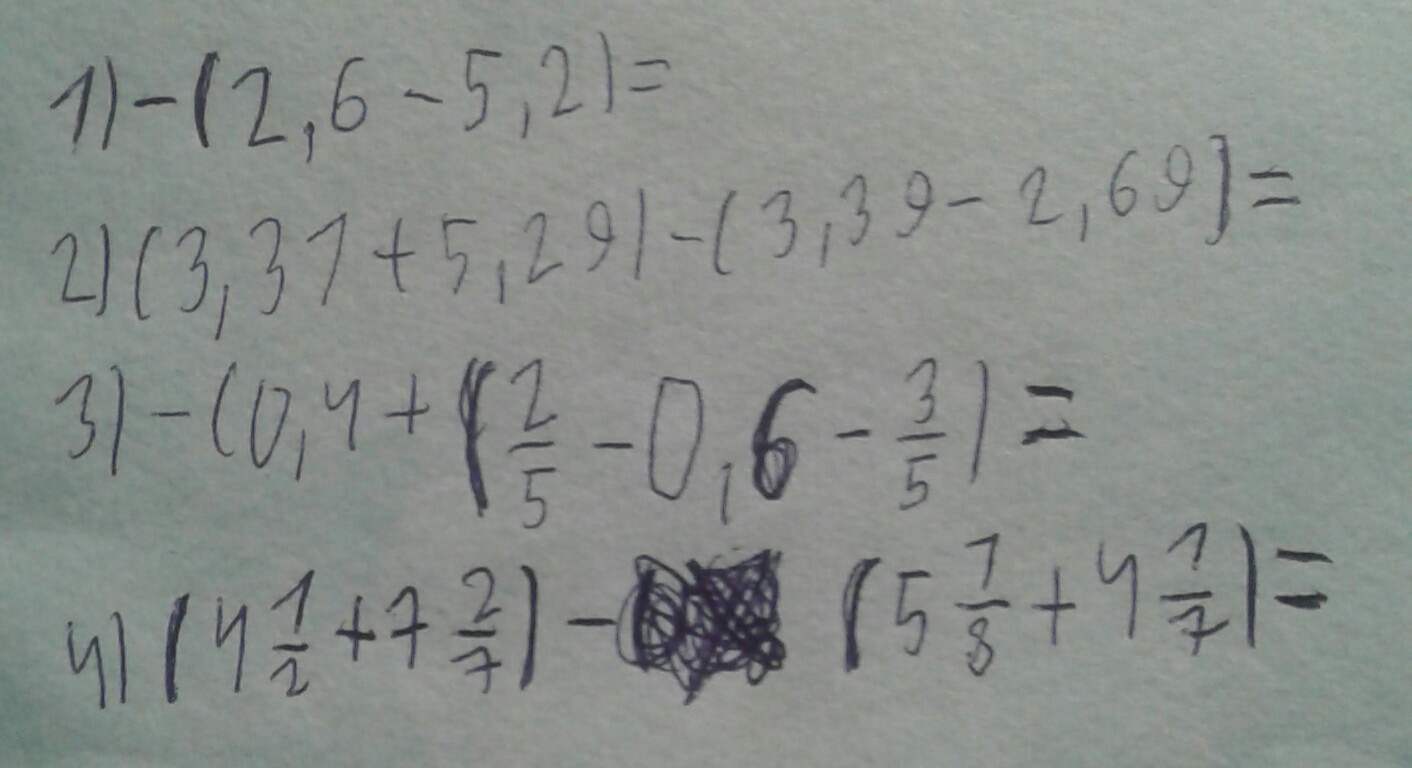 1) -(2,6 - 5,2) =
2) (3,31 + 5,29) - (3,39 - 2,69) =
3) -(0,4 + (2/5 - 0,6 - 3/5) =
4) (4 1/2 + 7 2/7) - (5 1/8 + 4 1/7) =